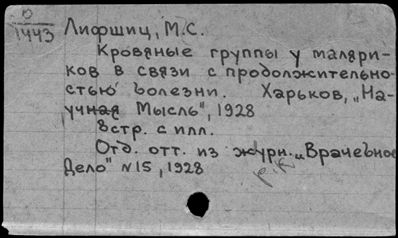 О
1443
Лифшиц, М.С.
Кровяные группы у маляри-
ков в связи с продолжительно-
стью болезни. Харьков, „На-
учная Мысль", 1928
8стр. с илл.
Отд. отт. из журн. „Врачебное
Дело" №15, 1928